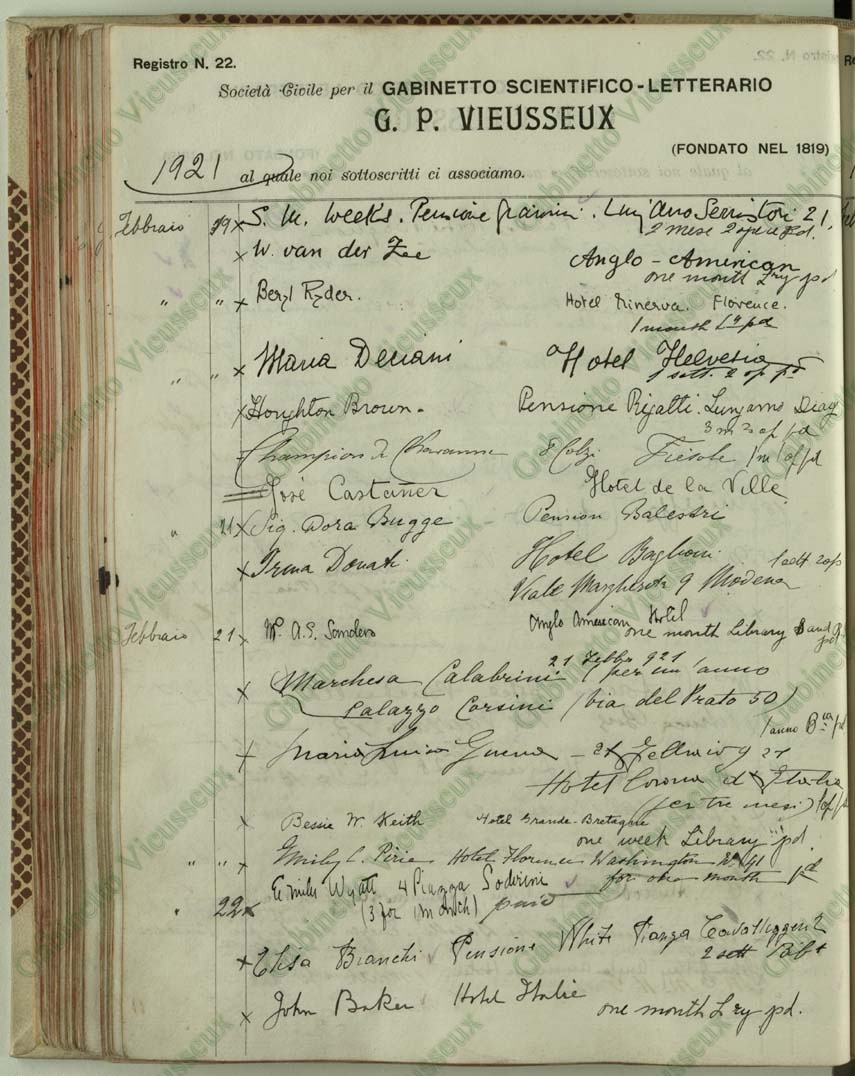 Registro N. 22.
Società Civile per il GABINETTO SCIENTIFICO-LETTERARIO
G. P. VIEUSSEUX
(FONDATO NEL 1819)
1921 al quale noi sottoscritti ci associamo.
Febbraio 19 x S. M. Weeks. Pensione Lung'Arno Serristori 21,
2 mese 2 op pd.
x W. van der Zee Anglo-American
one month Lry pd
" " x Beryl Ryder. Hotel Minerva. Florence.
1 month pd
" " x Maria Deciani Hotel Helvetia
1 sett. 2 op pd
x Houghton Brown. Pensione Rigatti. Lungarno Diaz
3 m 2 op pd
Champion de Fiesole 1 m 1 op pd
José Castañer Hotel de la Ville
" 21 x Sig. Dora Bugge Pension Balestri
x Irma Donati Hotel Baglioni 1 sett 2 op
Viale Margherita 9 Modena
Febbraio 21 x A.S. Sanders Anglo American Hotel
one month Library and
pd
21 Febbr 921
x Marchesa Calabrini (per un anno
Palazzo Corsini (Via del Prato 50)
1 anno pd
x Maria Luisa 21
Hotel Corona d'Italia
(per tre mesi) 1 op pd
x Bessie W. Keith Hotel Grande-Bretagne
one week Library pd.
" " x Emily C. Pirie Hotel Florence Washington
for one month pd
" 22 x Wyatt 4 Piazza Soderini
(3 for 1 month) paid
x Elisa Bianchi Pensione White Piazza Cavalleggeri 2
2 sett
x John Baker Hotel Italie
one month Lry pd.